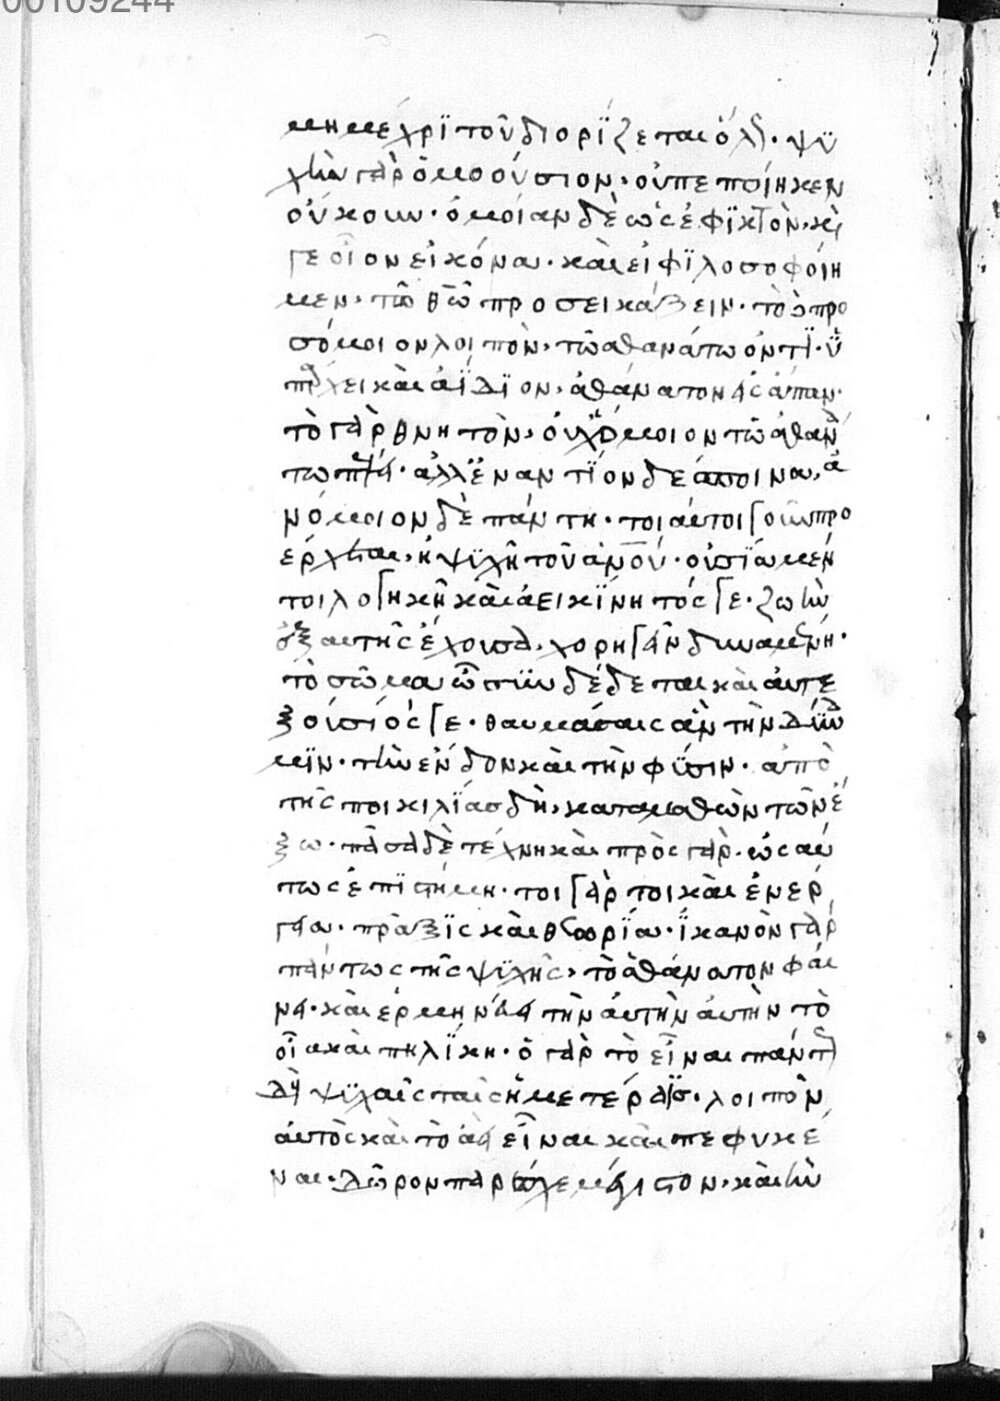 00109244
μη μέχρι τοῦ διορίζεται ὅλ. ψυ
χὴν γὰρ ὁμοούσιον. οὐ πεποίηκεν
οὔκουν. ὁμοίαν δὲ ὡς ἐφικτὸν. καὶ
γε οἷον εἰκόνα. καὶ εἰ φιλοσοφοίη
μεν. τῶ θῶ προσεικάζειν. τὸ προ
σόμοιον λοιπὸν. τῶ ἀθανάτω ὄντι. ὑ
πάρχει καὶ ἀΐδιον. ἀθάνατον εἰς ἅπαν.
τὸ γὰρ θνητὸν. οὐχ ὅμοιον τῶ ἀθανά
τω ἀλλ' ἐναντίον δε ἀ
νόμοιον δὲ πάντη. τοι προ
έρχεται. ἡ ψυχὴ τοῦ ἀνου. οὐσία μέν
τοι λογικὴ καὶ ἀεικίνητός γε. ζωὴν
ἐξ αὐτῆς ἔχουσα. χορηγεῖν δυναμένη.
τὸ σῶμα ὧ συνδέδεται καὶ αὐτε
ξούσιός γε. θαυμάσαις ἂν τὴν δύνα
μιν. τὴν ἔνδον καὶ τὴν φύσιν. ἀπὸ
τῆς ποικιλίας δὴ. καταμαθὼν τῶν ἔ
ξω. πᾶσα δὲ τέχνη καὶ πρὸς γὰρ. ὡσαύ
τως ἐπιστήμη. τοιγάρτοι καὶ ἐνέρ
γεια. πρᾶξις καὶ θεωρία. ἱκανὸν γὰρ
πάντως τῆς ψυχῆς. τὸ ἀθάνατον φαί
νει. καὶ ἑρμηνεύει τὴν αὐτὴν αὐτὴν τὸ
οἵα καὶ πηλίκη. ὁ γὰρ τὸ εἶναι
ψυχαῖς ταῖς ἡμετέραις. λοιπὸν
αὐτὸς καὶ τὸ ἀεὶ εἶναι καὶ πεφυκέ
ναι. δῶρον παρέσχε μέγιστον. καὶ ἦν